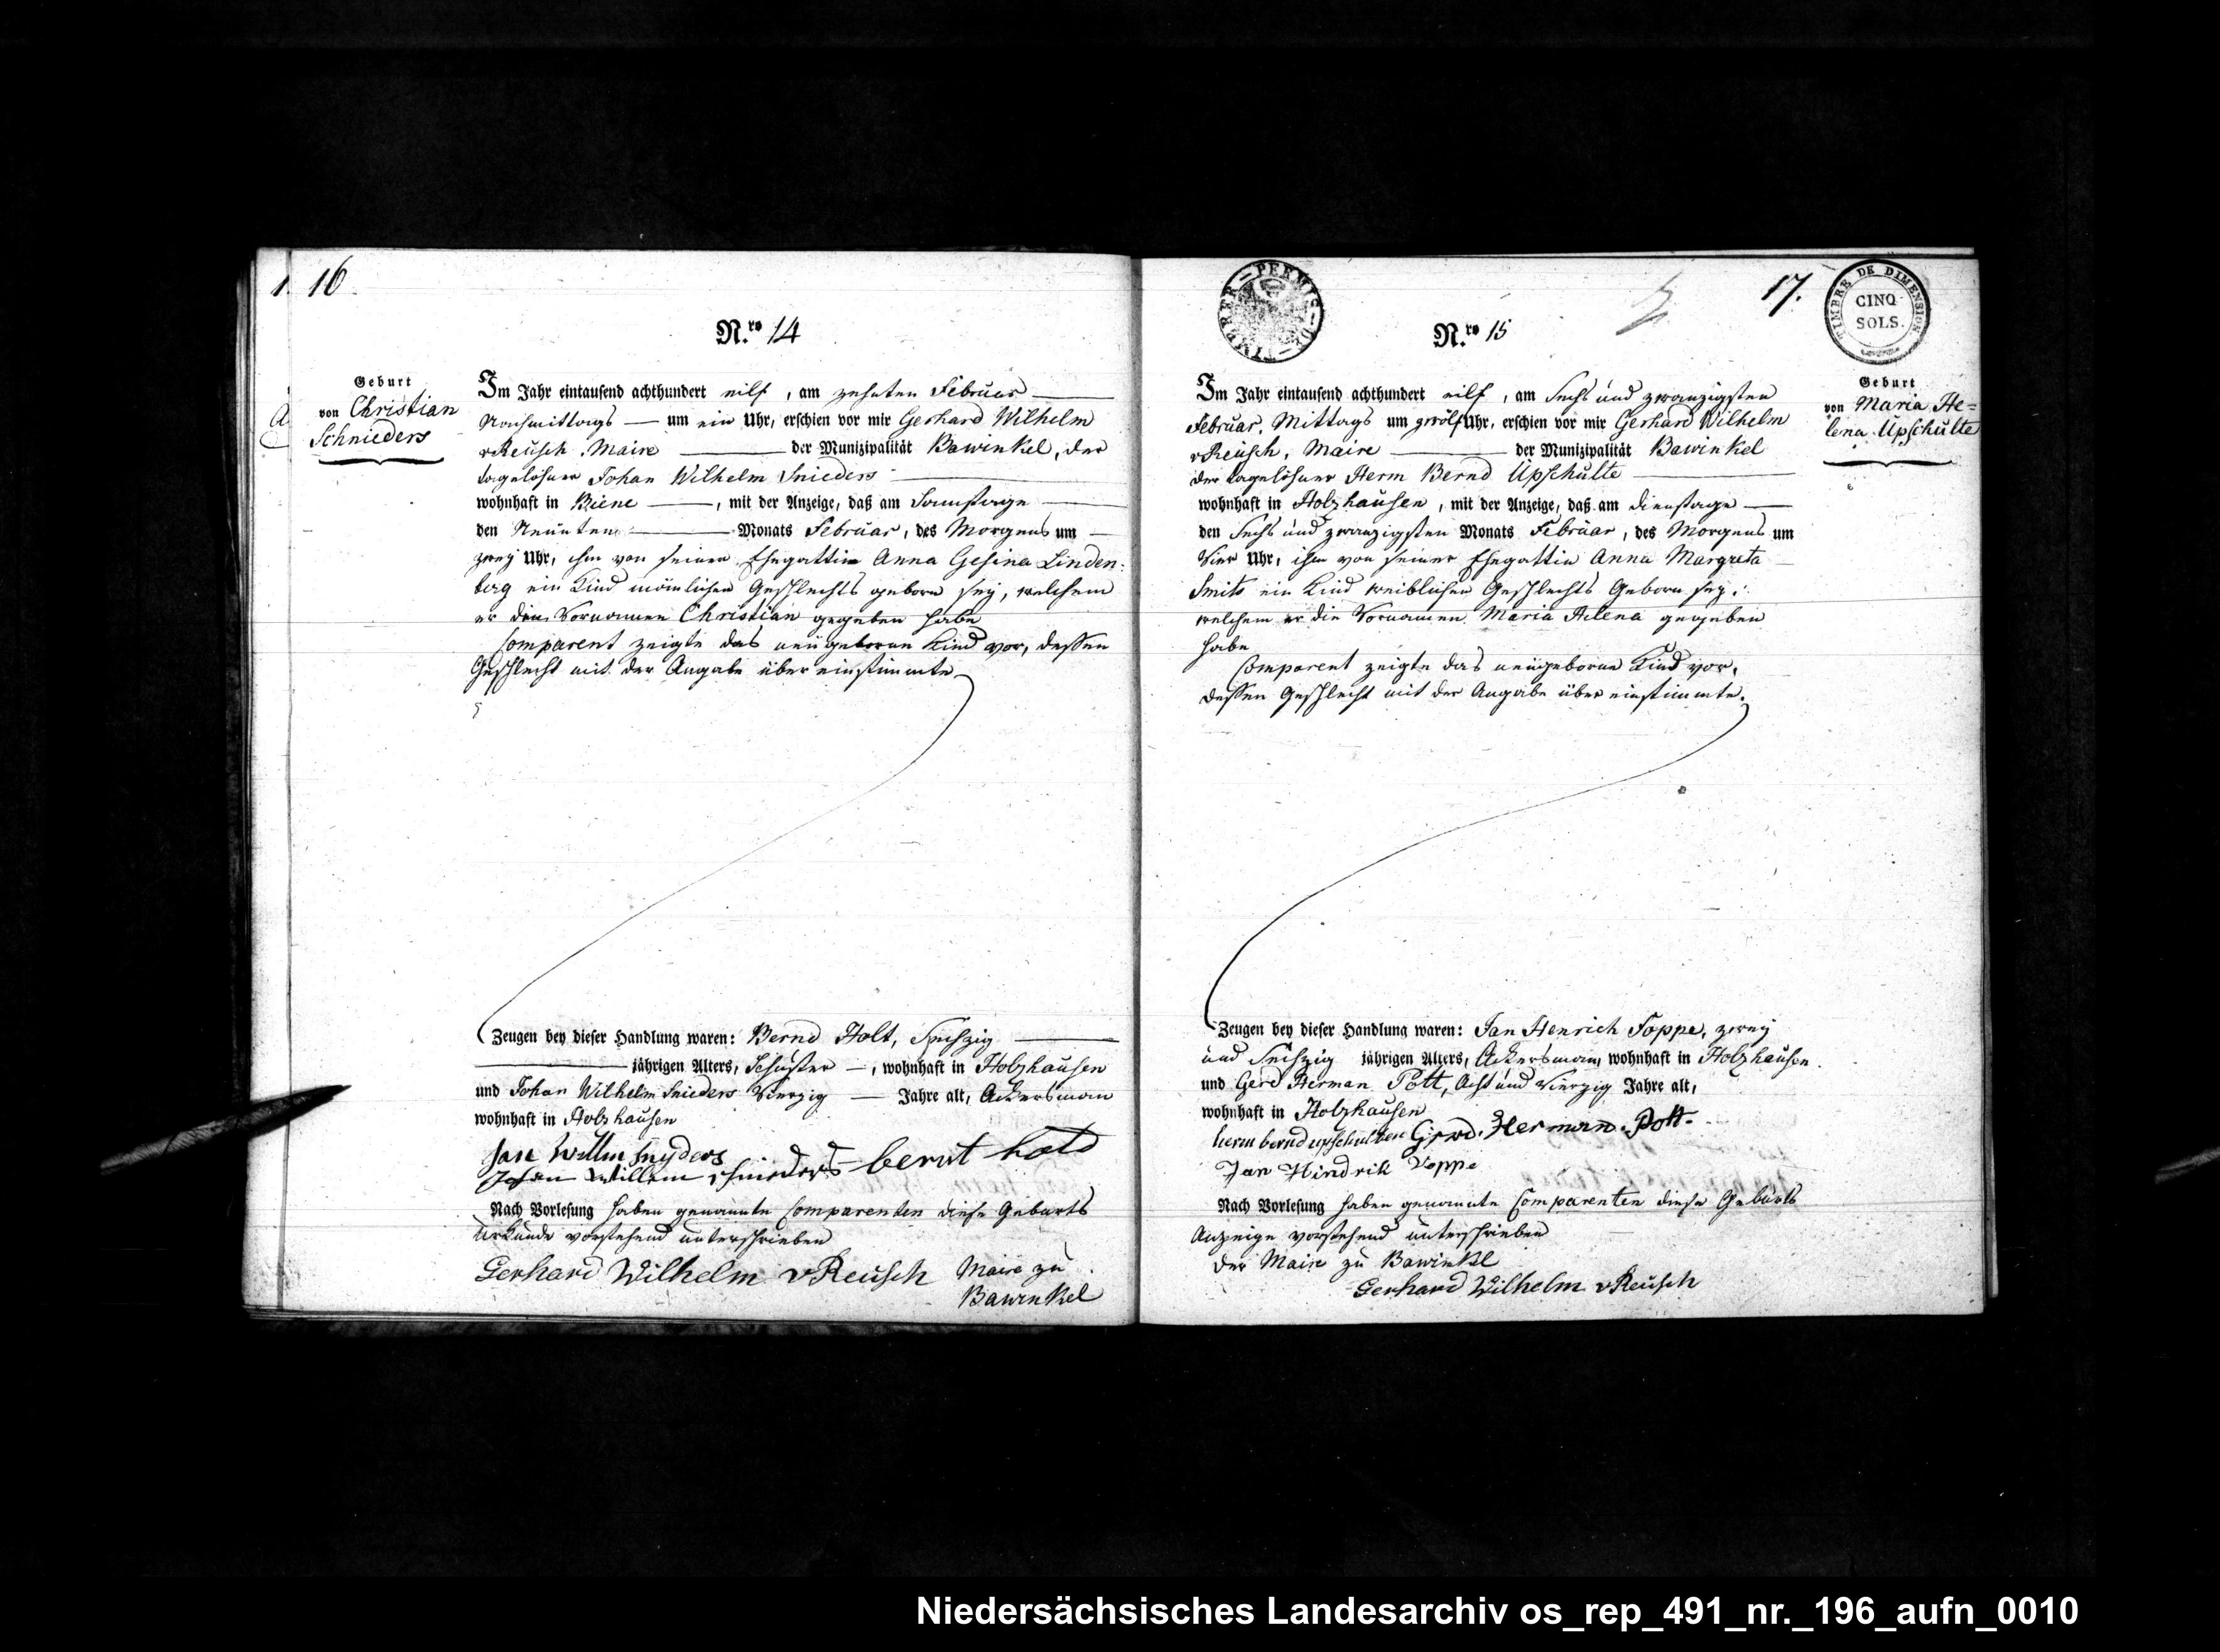 1. 16
N.ro 14
Geburt
von Christian
Schnieders
Im Jahr eintausend achthundert eilf, am zehnten Februar
Nachmittags um ein Uhr, erschien vor mir Gerhard Wilhelm
vReusch, Maire der Munizipalität Bawinkel, der
tagelöhner Johan Wilhelm Snieders
wohnhaft in Biene, mit der Anzeige, daß am Samstage
den Neunten Monats Februar, des Morgens um
zwey Uhr, ihm von seiner Ehegattin Anna Gesina Linden-
berg ein Kind mänlichen Geschlechts geborn sey, welchem
er den Vornamen Christian gegeben habe
Comparent zeigte das neugeborne Kind vor, dessen
Geschlecht mit der Angabe über einstimmte
Zeugen bey dieser Handlung waren: Bernd Holt, Sechszig
jährigen Alters, Schuster, wohnhaft in Holzhausen
und Johan Wilhelm Snieders Vierzig Jahre alt, Ackersman
wohnhaft in Holzhausen
Jan Willm Snyders
Johan Willem Schnieders bernt hold
Nach Vorlesung haben genannte Comparenten diese Geburts
Urkunde vorstehend unterschrieben
Gerhard Wilhelm vReusch Maire zu
Bawinkel
PERMIS DE TIMBRER
17.
TIMBRE DE DIMENSION
CINQ
SOLS.
N.ro 15
Geburt
von Maria He=
lena Upschulte
Im Jahr eintausend achthundert eilf, am Sechs und zwanzigsten
Februar, Mittags um zwölf Uhr, erschien vor mir Gerhard Wilhelm
vReusch, Maire der Munizipalität Bawinkel
der tagelöhner Herm Bernd Upschulte
wohnhaft in Holzhausen, mit der Anzeige, daß am dienstage
den Sechs und zwanzigsten Monats Februar, des Morgens um
Vier Uhr, ihm von seiner Ehegattin Anna Margreta
Smits ein Kind weiblichen Geschlechts Geborn sey,
welchem er die Vornamen Maria Helena gegeben
habe
Comparent zeigte das neugeborne Kind vor,
dessen Geschlecht mit der Angabe über einstimmte.
Zeugen bey dieser Handlung waren: Jan Henrich Toppe, zwey
und Sechszig jährigen Alters, Ackersman, wohnhaft in Holzhausen.
und Gerd Herman Pott, Acht und Vierzig Jahre alt,
wohnhaft in Holzhausen
herm bernd upschulten Gerd. Herman. Pott-
Jan Hindrik Toppe
Nach Vorlesung haben genannte Comparenten diese Geburts
Anzeige vorstehend unterschrieben
Der Maire zu Bawinkel
Gerhard Wilhelm vReusch
Niedersächsisches Landesarchiv os_rep_491_nr._196_aufn_0010